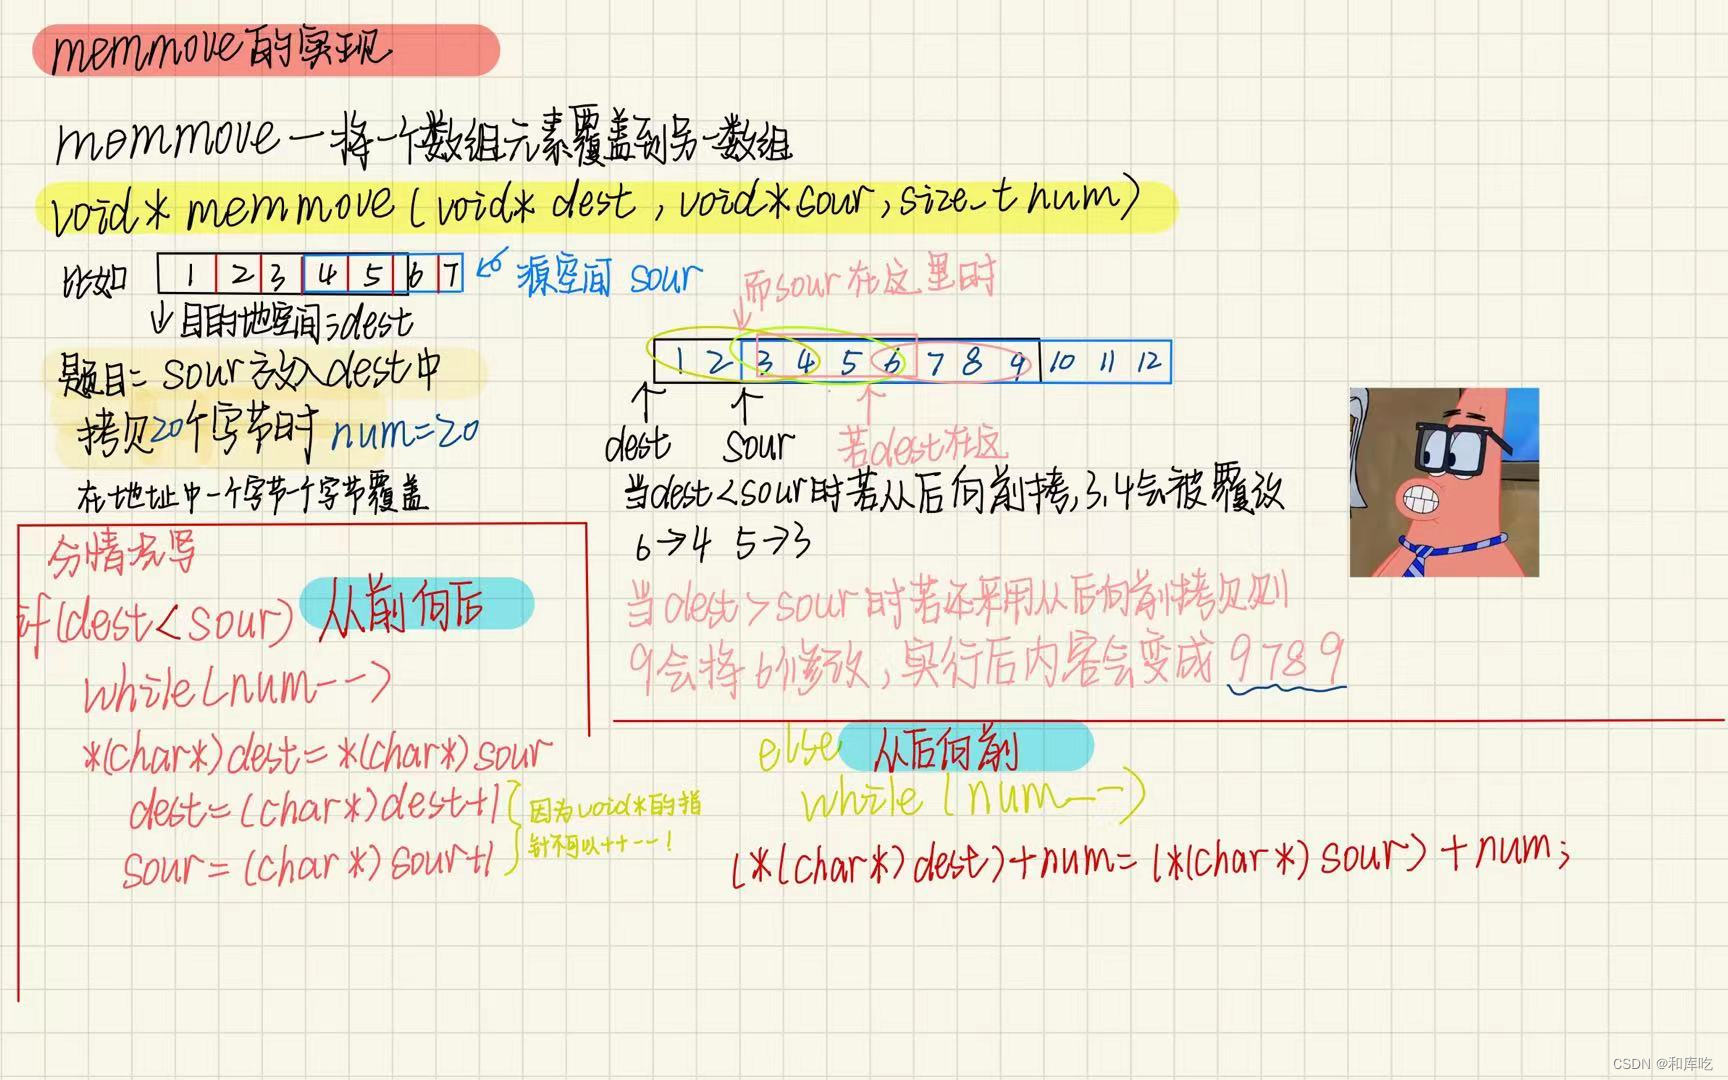 memmove的实现
memmove一将一个数组元素覆盖到另一数组
void* memmove(void* dest,void*sour,size_t num)
比如 1 2 3 4 5 6 7 源空间 sour
目的地空间:dest
题目= sour放入dest中
拷贝20个字节时 num=20
在地址中一个字节一个字节覆盖
而sour在这里时
1 2 3 4 5 6 7 8 9 10 11 12
dest sour 若dest在这
当dest<sour时若从后向前拷,3,4会被覆改
6→4 5→3
当dest>sour时若还采用从后向前拷贝则
9会将6修改,实行后内容会变成9789
分情况写
if(dest<sour) 从前向后
while(num--)
*(char*)dest=*(char*)sour
dest=(char*)dest+1
sour=(char*)sour+1
因为void*的指
针不可以++--!
else 从后向前
while(num--)
(*(char*)dest)+num=(*(char*)sour)+num;
CSDN @和库吃